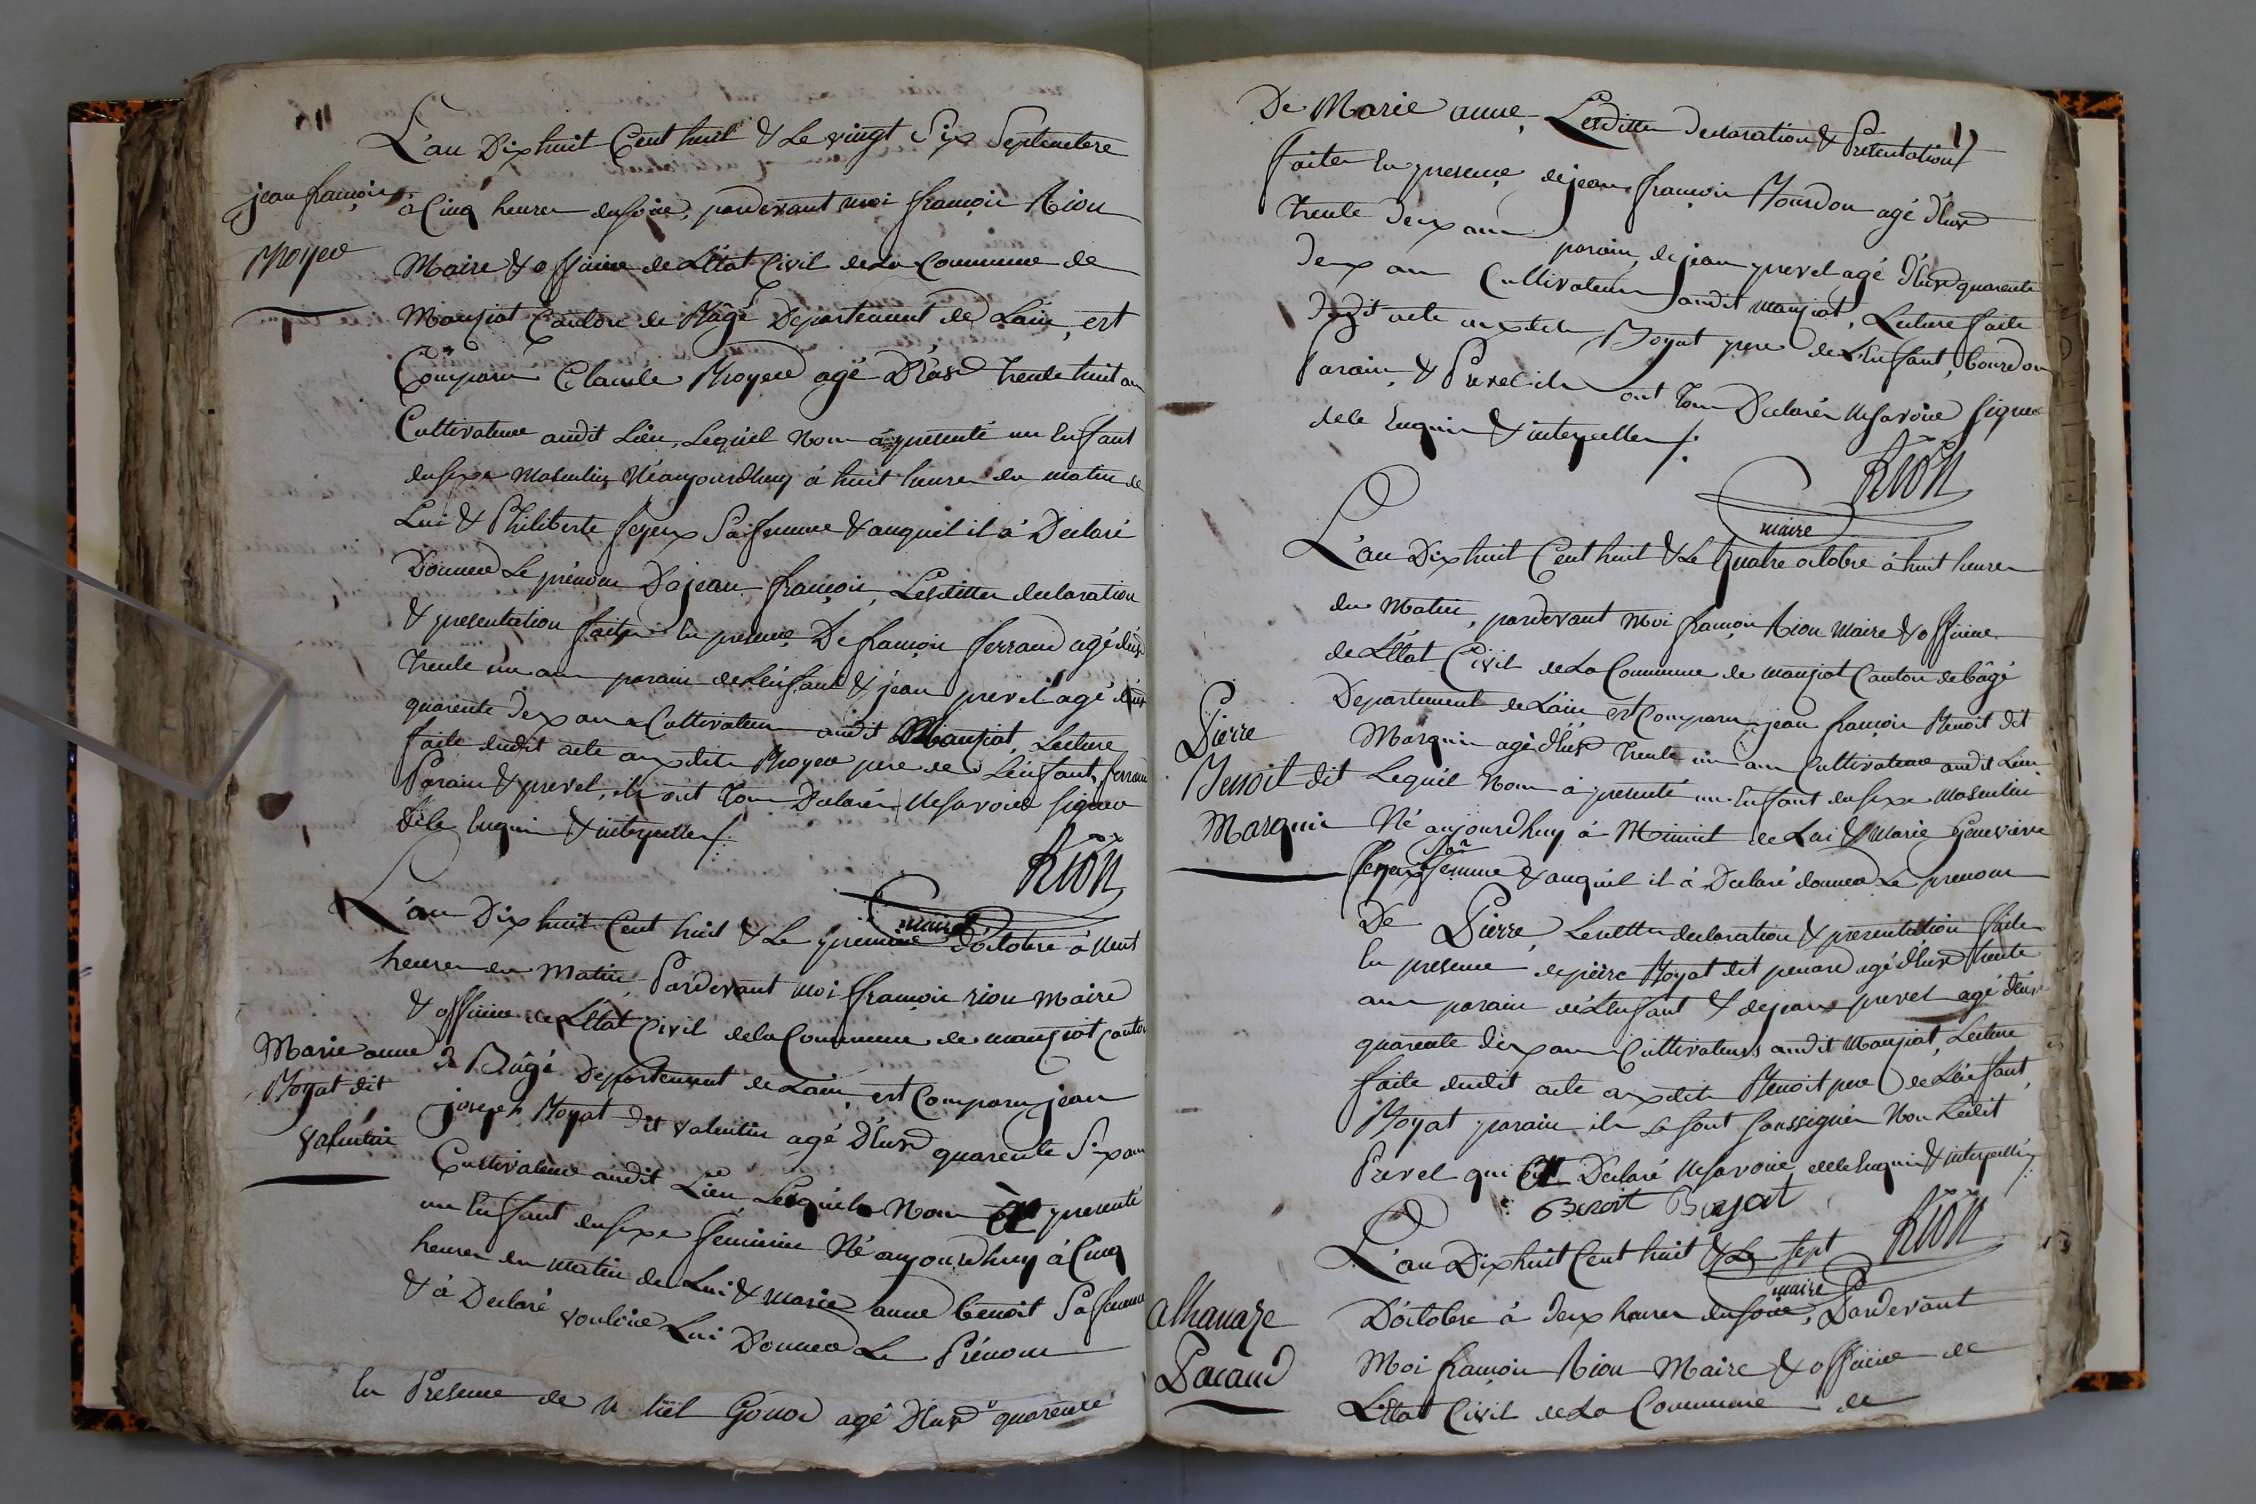 L'an Dix huit Cent huit & Le vingt Six Septembre
jean françois
Broyer
à Cinq heures du soir, pardevant moi françois Rion
Maire & officier de L'Etat Civil de La Commune de
Manziat Canton de Bâgé Departement de L'ain, est
Comparu Claude Broyer agé D'eusd trente huit ans
Cultivateur audit Lieu, Lequel Nous à présenté un Enfant
du sexe Masculin Né aujourdhuy à huit heures du matin de
Lui & Philiberte feyeux Sa femme & auquel il à Declaré
Donner Le prénom De jean françois, Lesdittes declaration
& presentation faites En presence De françois ferrand agé d'eusd
trente un ans parain de L'enfant & jean prevel agé d'eusd
quarente deux ans Cultivateurs audit Manziat, Lecture
faite dudit acte auxdits Broyer pere de L'enfant, ferrand
Parain & prevel, ils ont tous Declarés Ne savoir signer
de le Enquis & interpelles /.
Rion
maire
L'an Dix huit Cent huit & Le premier D'octobre à neuf
heures du Matin, Pardevant moi françois rion Maire
& officier de L'Etat Civil de la Commune de manziat Canton
Marie anne
Boyat dit
valentin
de Bâgé Departement de L'ain, est Comparu jean
joseph Boyat dit valentin agé D'eusd quarente Six ans
Cultivateur audit Lieu Lequel Nous à presenté
un Enfant du sexe feminin Né aujourdhuy à Cinq
heures du matin de Lui & Marie anne benoit Sa femme
& à Declaré vouloir Lui Donner Le Prénom
En Presence de Gonod agé D'eusd quarente
17
De Marie anne, Lesdittes declaration & Presentation
faites En presence de jean françois Bourdon agé d'eusd
trente deux ans parain, de jean prevel agé d'eusd quarente
deux ans Cultivateurs audit manziat, Lecture faite
dudit acte auxdits Boyat pere de L'Enfant, bourdon
Parain, & Prevel ils ont tous Declarés Ne savoir signer
de le Enquis & interpelles /.
Rion
maire
L'an Dix huit Cent huit & Le quatre octobre à huit heures
du Matin, pardevant Moi françois Rion Maire & officier
de L'Etat Civil de La Commune de manziat Canton de bâgé
Departement de L'ain est Comparu jean françois Benoit dit
Pierre
Benoit dit
Marquis
Marquis agé d'eusd trente un ans Cultivateur audit Lieu
Lequel Nous à presenté un Enfant du sexe Masculin
Né aujourdhuy à Minuit de Lui & Marie Genevieve
Sa
feyeux femme & auquel il à Declaré donner Le prenom
De Pierre, Lesdittes declaration & presentation faites
En presence de pierre Boyat dit penard agé d'eusd trente
ans parain de L'Enfant & de jean prevel agé d'eusd
quarente deux ans Cultivateurs audit Manziat, Lecture
faite dudit acte auxdits Benoit pere de L'enfant,
Boyat parain ils se sont soussignés Non Ledit
Prevel qui à Declaré Ne savoir de le Enquis & interpellé /.
Benoit Boyat
Rion
maire
L'an Dix huit Cent huit & Le sept
athanaze
Pacaud
D'octobre à deux heures du soir, Pardevant
Moi françois Rion Maire & officier de
L'Etat Civil de La Commune de